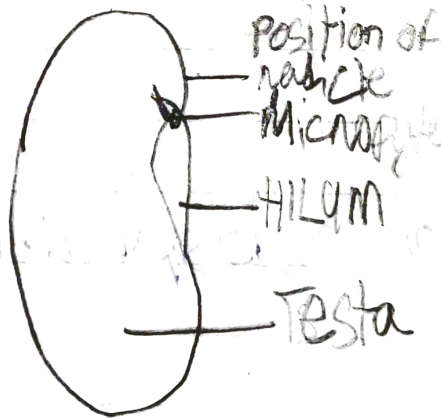 Position of
radicle
Micropyle
HILUM
Testa